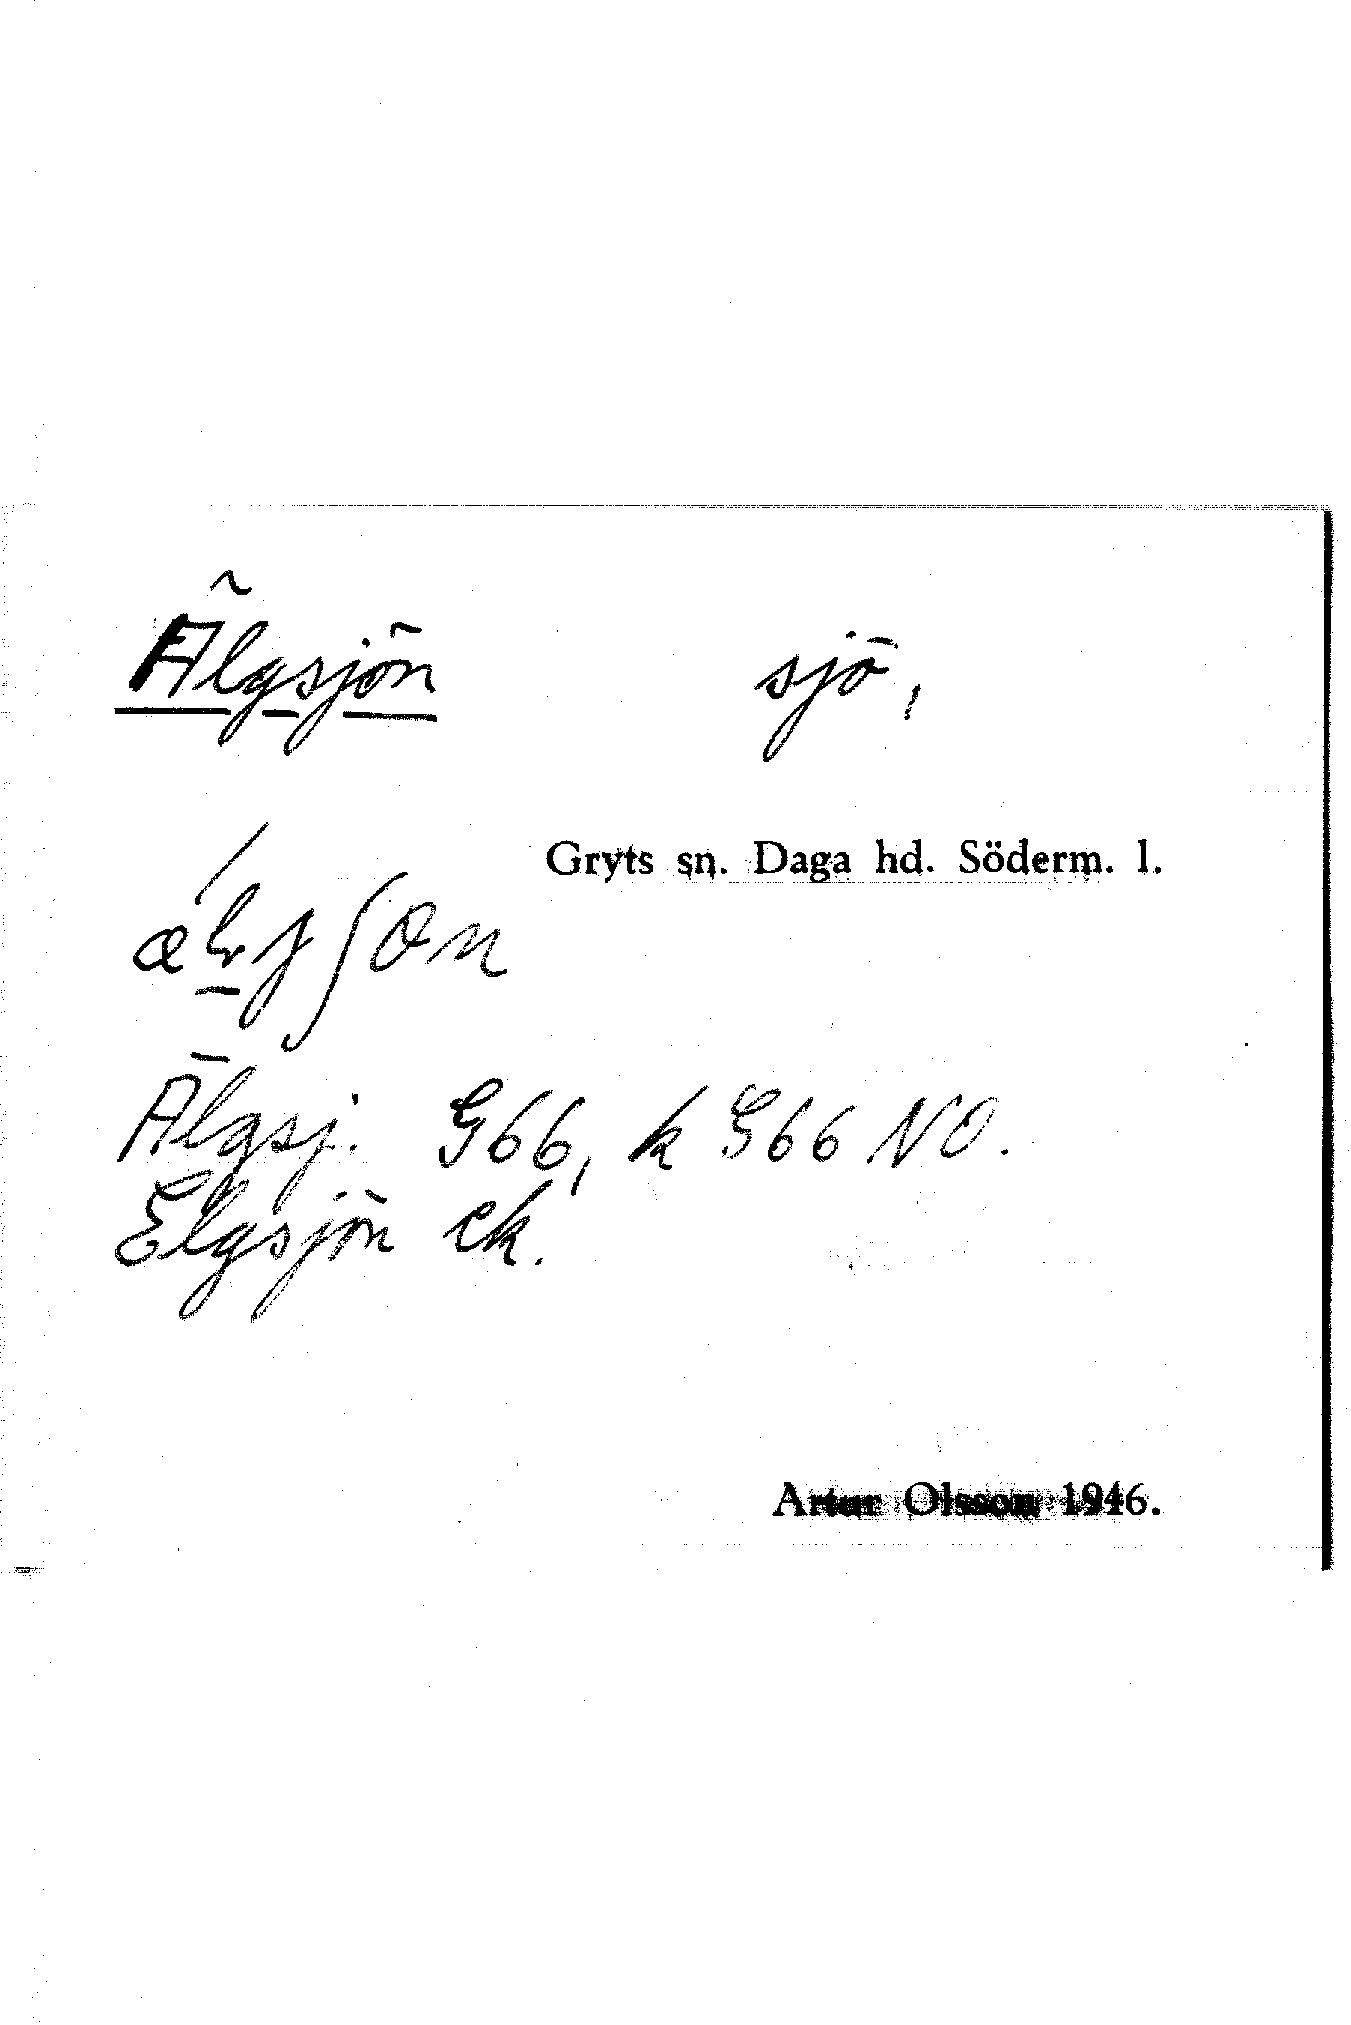 Älgsjön sjö,
Gryts sn. Daga hd. Söderm. l.
Älgsj. G66, k G66 NO.
Elgsjön ek.
Artur Olsson 1946.